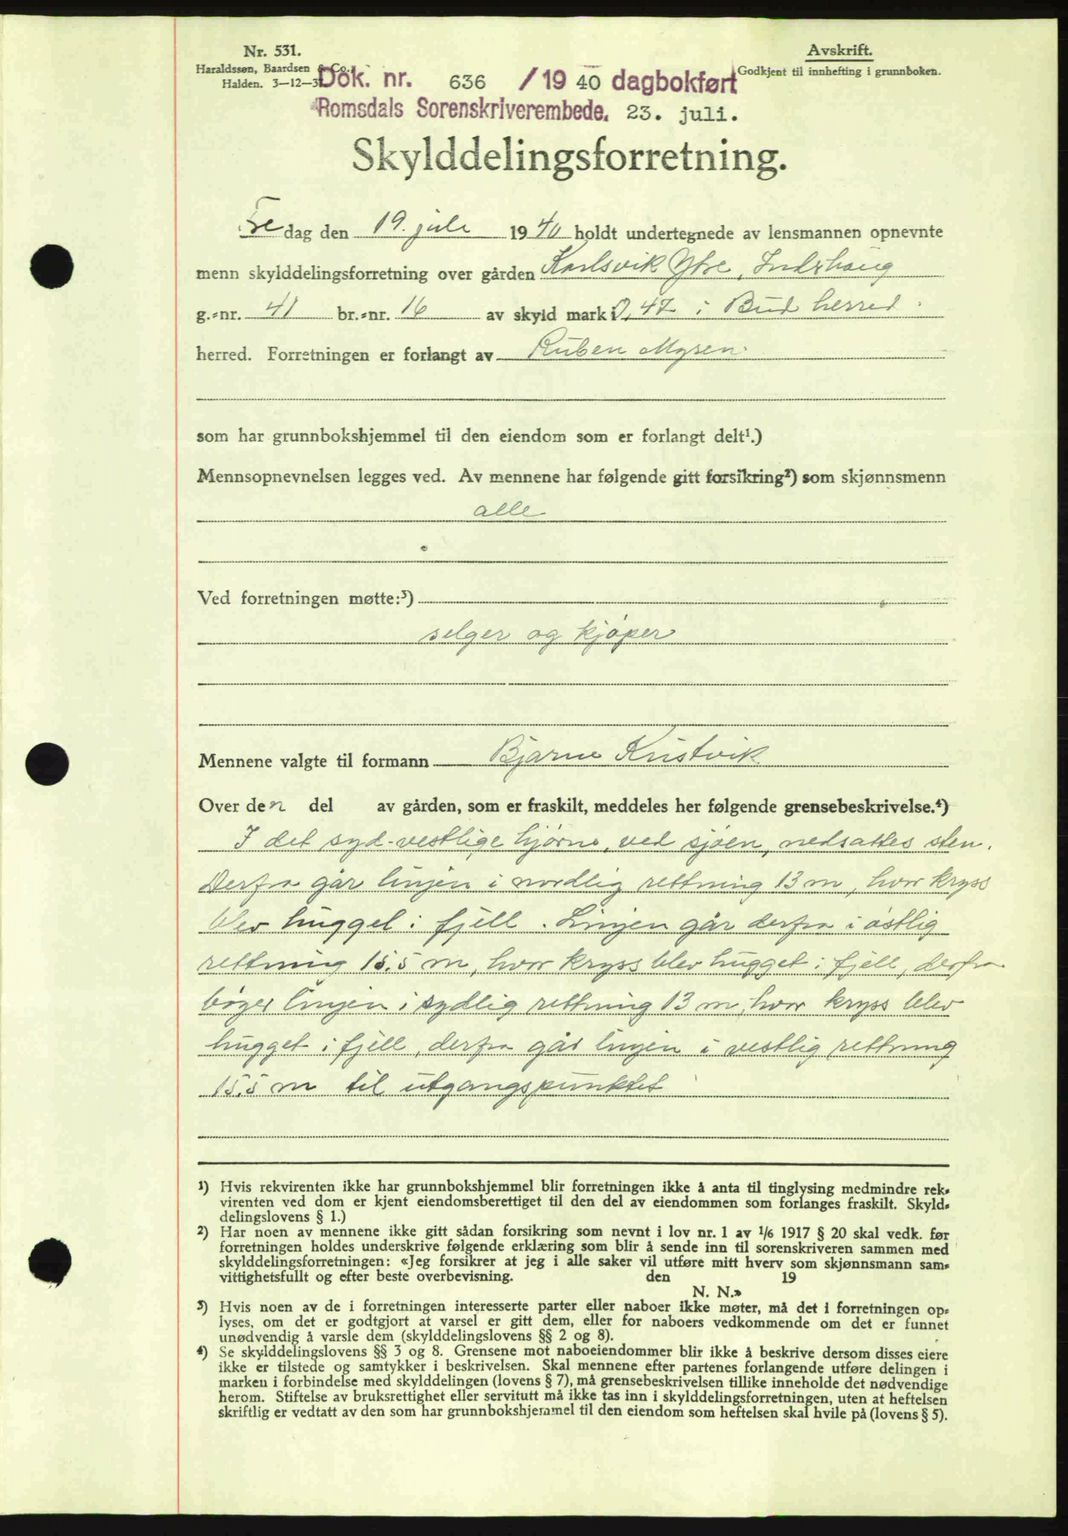 Nr. 531.
Haraldssøn, Baardsen & Co.
Halden. 3—12—3
Avskrift.
Godkjent til innhefting i grunnboken.
Dok. nr. 636 /1940 dagbokført
Romsdals Sorenskriverembede. 23. juli.
Skylddelingsforretning.
Fredag den 19. juli 1940 holdt undertegnede av lensmannen opnevnte
menn skylddelingsforretning over gården Karlsvik Ytre, Indrhaug
g.-nr. 41 br.-nr. 16 av skyld mark 0,47 i Bud herred
herred. Forretningen er forlangt av Ruben Mysen
som har grunnbokshjemmel til den eiendom som er forlangt delt¹.)
Mennsopnevnelsen legges ved. Av mennene har følgende gitt forsikring²) som skjønnsmenn
alle
Ved forretningen møtte:³)
selger og kjøper
Mennene valgte til formann Bjarne Kristvik
Over den del av gården, som er fraskilt, meddeles her følgende grensebeskrivelse.⁴)
I det syd-vestlige hjørne, ved sjøen, nedsattes sten.
Derfra går linjen i nordlig rettning 13 m, hvor kryss
blev hugget i fjell. Linjen går derfra i østlig
rettning 15.5 m, hvor kryss blev hugget i fjell, derfra
bøyer linjen i sydlig rettning 13 m, hvor kryss blev
hugget i fjell, derfra går linjen i vestlig rettning
15.5 m til utgangspunktet
¹) Hvis rekvirenten ikke har grunnbokshjemmel blir forretningen ikke å anta til tinglysing medmindre rek-
virenten ved dom er kjent eiendomsberettiget til den del av eiendommen som forlanges fraskilt. Skyld-
delingslovens § 1.)
²) Har noen av mennene ikke gitt sådan forsikring som nevnt i lov nr. 1 av 1/6 1917 § 20 skal vedk. før
forretningen holdes underskrive følgende erklæring som blir å sende inn til sorenskriveren sammen med
skylddelingsforretningen: «Jeg forsikrer at jeg i alle saker vil utføre mitt hverv som skjønnsmann sam-
vittighetsfullt og efter beste overbevisning. den 19
N. N.»
³) Hvis noen av de i forretningen interesserte parter eller naboer ikke møter, må det i forretningen op-
lyses, om det er godtgjort at varsel er gitt dem, eller for naboers vedkommende om det er funnet
unødvendig å varsle dem (skylddelingslovens §§ 2 og 8).
⁴) Se skylddelingslovens §§ 3 og 8. Grensene mot naboeiendommer blir ikke å beskrive dersom disses eiere
ikke er tilstede og samtykker i beskrivelsen. Skal mennene efter partenes forlangende utføre delingen i
marken i forbindelse med skylddelingen (lovens § 7), må grensebeskrivelsen tillike inneholde det nødvendige
herom. Stiftelse av bruksrettighet eller servitutt må ikke tas inn i skylddelingsforretningen, uten at heftelsen
skriftlig er vedtatt av den som har grunnbokshjemmel til den eiendom som heftelsen skal hvile på (lovens § 5).